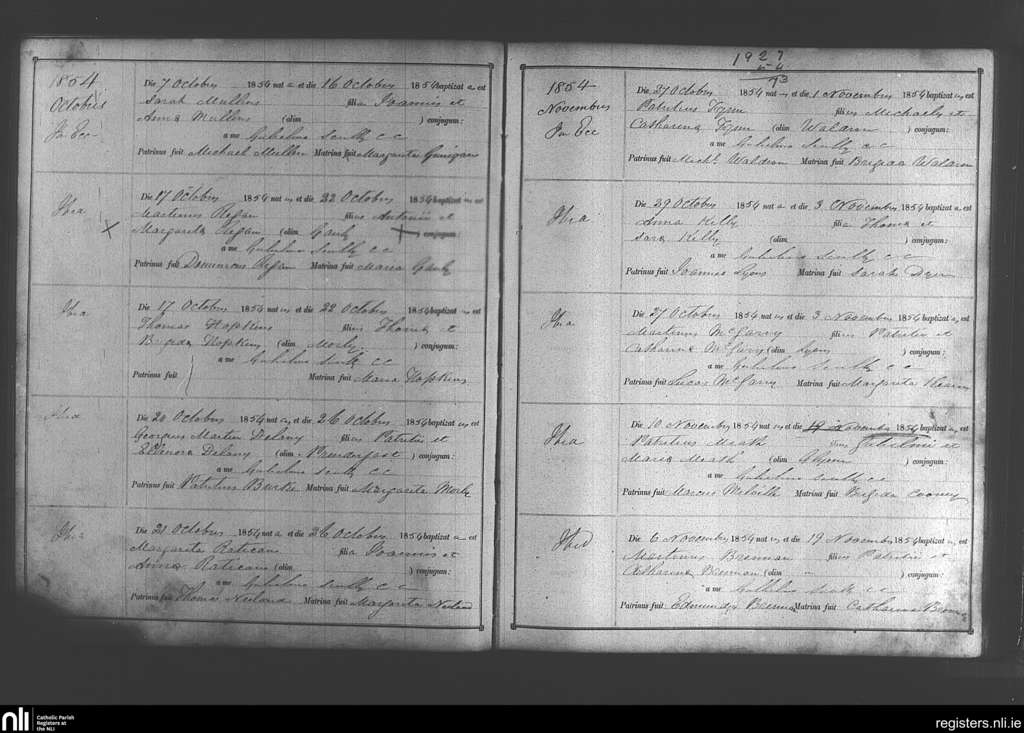 1854
Octobris
In Ecc
Die 7 Octobris 1854 nat a et die 16 Octobris 1854 baptizat a est
Sarah Mullins filia Joannis et
Anna Mullins (olim ) conjugum:
a me Gulielmo Scully C C
Patrinus fuit Michael Mullin Matrina fuit Margarita
Ibia
Die 17 Octobris 1854 nat us et die 22 Octobris 1854 baptizat us est
Martinus Regan filius Antonii et
Margarita Regan (olim ) conjugum:
a me Gulielmo Scully C C
Patrinus fuit Dominicus Regan Matrina fuit Maria
Ibia
Die 17 Octobris 1854 nat us et die 22 Octobris 1854 baptizat us est
Thomas Hopkins filius Thoma et
Brigida Hopkins (olim Morly ) conjugum:
a me Gulielmo Scully C C
Patrinus fuit Matrina fuit Maria Hopkins
Ibia
Die 20 Octobris 1854 nat us et die 26 Octobris 1854 baptizat us est
Georgius Martin Delany filius Patritii et
Ellenora Delany (olim Prendergast ) conjugum:
a me Gulielmo Scully C C
Patrinus fuit Patritius Burke Matrina fuit Margarita Morly
Ibia
Die 21 Octobris 1854 nat a et die 26 Octobris 1854 baptizat a est
Margarita Ratican filia Joannis et
Anna Ratican (olim ) conjugum:
a me Gulielmo Scully C C
Patrinus fuit Thomas Neiland Matrina fuit Margarita
1927
54
73
1854
Novembris
In Ecc
Die 27 Octobris 1854 nat us et die 1 Novembris 1854 baptizat us est
Patritius filius Michaelis et
Catharina (olim Waldron ) conjugum:
a me Gulielmo Scully C C
Patrinus fuit Michl Waldron Matrina fuit Brigida Waldron
Ibia
Die 29 Octobris 1854 nat a et die 3 Novembris 1854 baptizat a est
Anna Kelly filia Thoma et
Sara Kelly (olim ) conjugum:
a me Gulielmo Scully C C
Patrinus fuit Joannes Lyons Matrina fuit Sarah Dyer
Ibia
Die 27 Octobris 1854 nat us et die 3 Novembris 1854 baptizat us est
Martinus McGarry filius Patritii et
Catharina McGarry (olim Lyons ) conjugum:
a me Gulielmo Scully C C
Patrinus fuit Lucas McGarry Matrina fuit Margarita
Ibia
Die 10 Novembris 1854 nat us et die 19 Novembris 1854 baptizat us est
Patritius Meath filius Gulielmi et
Maria Meath (olim ) conjugum:
a me Gulielmo Scully C C
Patrinus fuit Marcus Matrina fuit Brigida Cooney
Ibid
Die 6 Novembris 1854 nat us et die 19 Novembris 1854 baptizat us est
Martinus Brennan filius Patritii et
Catharina Brennan (olim ) conjugum:
a me Gulielmo Scully C C
Patrinus fuit Edmundus Brennan Matrina fuit Catharina
nli Catholic Parish
Registers at
the NLI
registers.nli.ie